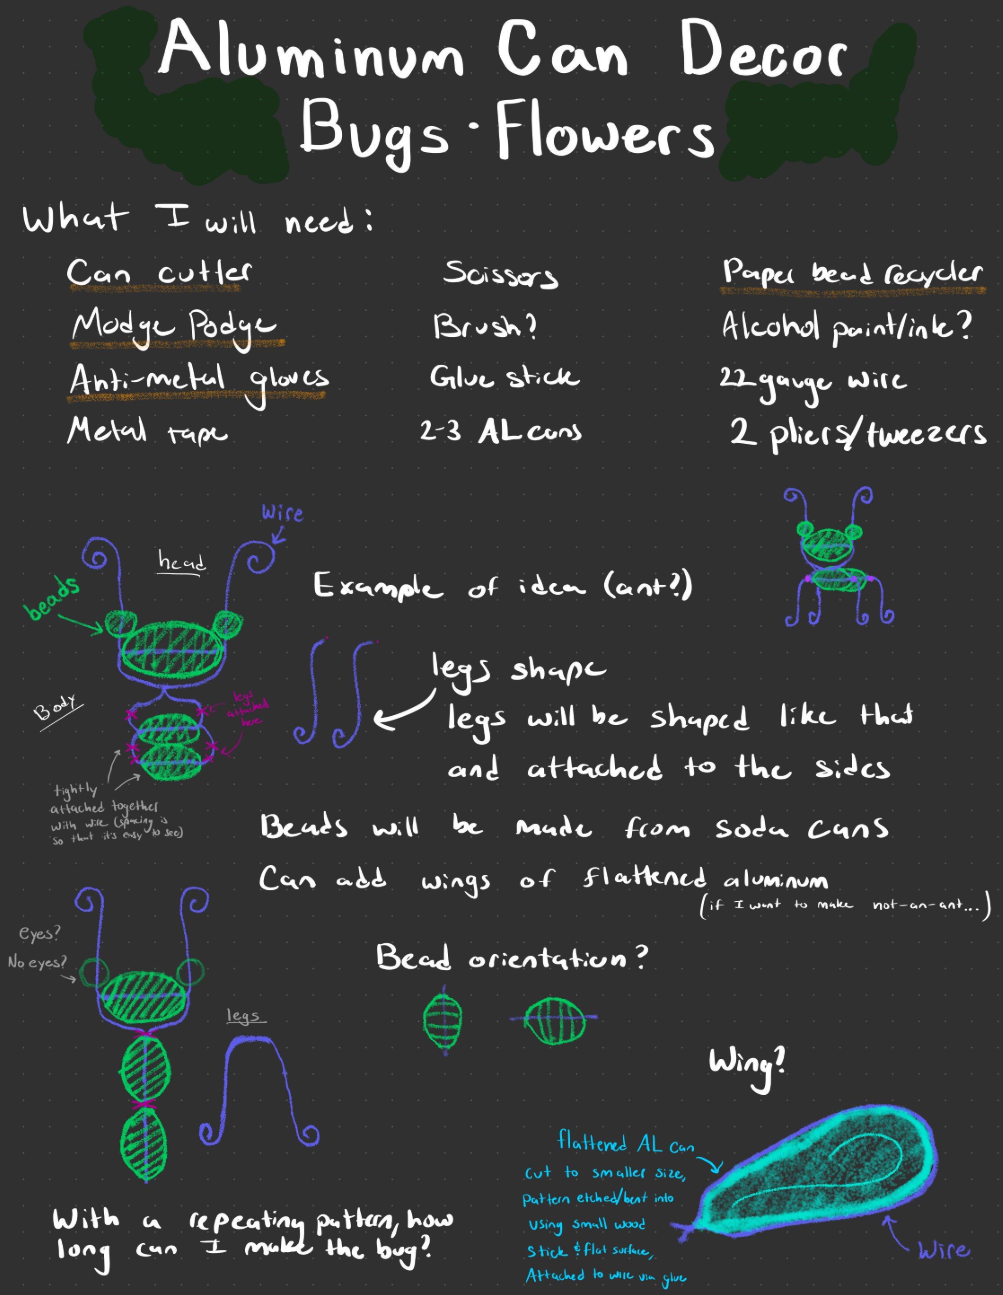 Aluminum Can Decor
Bugs · Flowers
What I will need:
Can cutter
Scissors
Paper bead recycler
Modge Podge
Brush?
Alcohol paint/ink?
Anti-metal gloves
Glue stick
22 gauge wire
Metal tape
2-3 AL cans
2 pliers/tweezers
Wire
head
beads
Example of idea (ant?)
legs shape
legs will be shaped like that
and attached to the sides
Body
legs
attached
here
tightly
attached together
with wire (spacing is
so that it's easy to see)
Beads will be made from soda cans
Can add wings of flattened aluminum
(if I want to make not-an-ant...)
eyes?
No eyes?
Bead orientation?
legs
Wing?
flattened AL can
cut to smaller size,
pattern etched/bent into
using small wood
stick & flat surface,
Attached to wire via glue
Wire
With a repeating pattern, how
long can I make the bug?